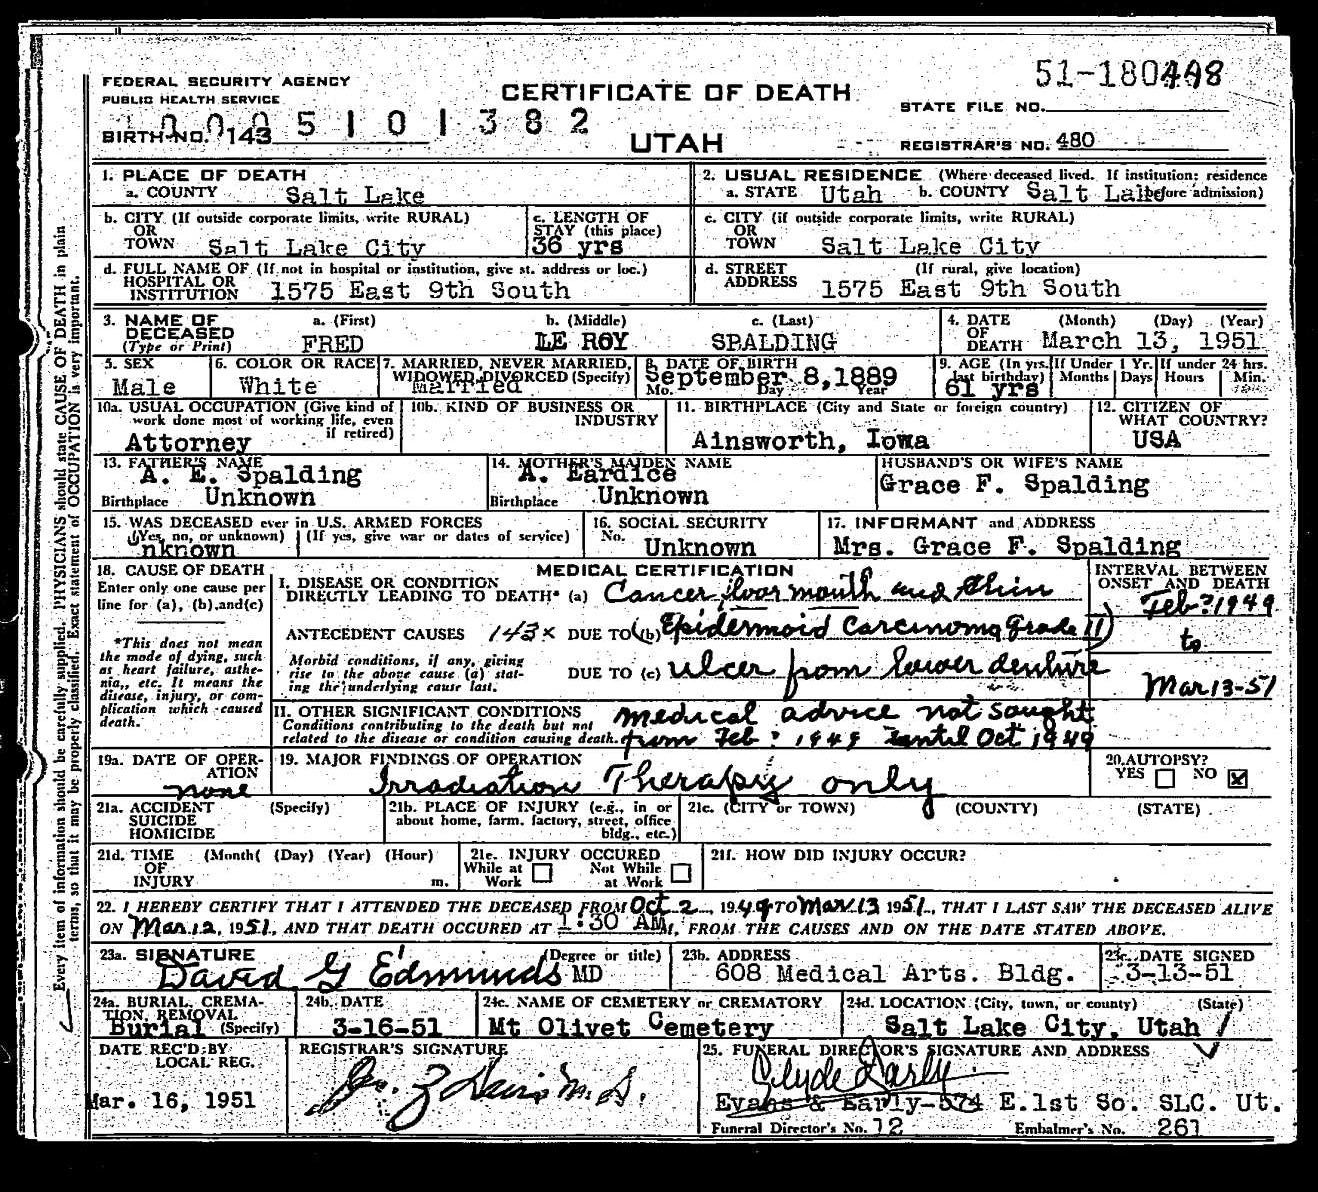 51-180498
FEDERAL SECURITY AGENCY
PUBLIC HEALTH SERVICE
CERTIFICATE OF DEATH
STATE FILE NO.
BIRTH NO. 143
5101382
UTAH
REGISTRAR'S NO. 480
Every item of information should be carefully supplied. PHYSICIANS should state CAUSE OF DEATH in plain
terms, so that it may be properly classified. Exact statement of OCCUPATION is very important.
1. PLACE OF DEATH
a. COUNTY Salt Lake
2. USUAL RESIDENCE (Where deceased lived. If institution: residence
a. STATE Utah b. COUNTY Salt Lake before admission)
b. CITY (If outside corporate limits, write RURAL)
OR
TOWN Salt Lake City
c. LENGTH OF
STAY (this place)
36 yrs
c. CITY (if outside corporate limits, write RURAL)
OR
TOWN Salt Lake City
d. FULL NAME OF (If not in hospital or institution, give st. address or loc.)
HOSPITAL OR
INSTITUTION 1575 East 9th South
d. STREET (If rural, give location)
ADDRESS 1575 East 9th South
3. NAME OF DECEASED
(Type or Print)
a. (First) b. (Middle) c. (Last)
FRED LE ROY SPALDING
4. DATE (Month) (Day) (Year)
OF
DEATH March 13, 1951
5. SEX
Male
6. COLOR OR RACE
White
7. MARRIED, NEVER MARRIED,
WIDOWED, DIVORCED (Specify)
Married
8. DATE OF BIRTH
September 8, 1889
Mo. Day Year
9. AGE (In yrs. last birthday)
61 yrs
If Under 1 Yr.
Months Days
If under 24 hrs.
Hours Min.
10a. USUAL OCCUPATION (Give kind of
work done most of working life, even
if retired)
Attorney
10b. KIND OF BUSINESS OR
INDUSTRY
11. BIRTHPLACE (City and State or foreign country)
Ainsworth, Iowa
12. CITIZEN OF
WHAT COUNTRY?
USA
13. FATHER'S NAME
A. E. Spalding
Birthplace Unknown
14. MOTHER'S MAIDEN NAME
A. Eardice
Birthplace Unknown
HUSBAND'S OR WIFE'S NAME
Grace F. Spalding
15. WAS DECEASED ever in U.S. ARMED FORCES
(Yes, no, or unknown) (If yes, give war or dates of service)
Unknown
16. SOCIAL SECURITY
No. Unknown
17. INFORMANT and ADDRESS
Mrs. Grace F. Spalding
18. CAUSE OF DEATH
Enter only one cause per
line for (a), (b), and (c)
*This does not mean
the mode of dying, such
as heart failure, asthe-
nia, etc. It means the
disease, injury, or com-
plication which caused
death.
MEDICAL CERTIFICATION
I. DISEASE OR CONDITION
DIRECTLY LEADING TO DEATH* (a) Cancer floor mouth and Chin
ANTECEDENT CAUSES 143x DUE TO (b) Epidermoid Carcinoma Grade II)
Morbid conditions, if any, giving
rise to the above cause (a) stat-
ing the underlying cause last.
DUE TO (c) ulcer from lower denture
INTERVAL BETWEEN
ONSET AND DEATH
Feb? 1949
to
Mar 13-51
II. OTHER SIGNIFICANT CONDITIONS
Conditions contributing to the death but not
related to the disease or condition causing death.
medical advice not sought
from Feb? 1949 until Oct 1949
19a. DATE OF OPER-
ATION
none
19. MAJOR FINDINGS OF OPERATION
Irradiation Therapy only
20. AUTOPSY?
YES NO
21a. ACCIDENT (Specify)
SUICIDE
HOMICIDE
21b. PLACE OF INJURY (e.g., in or
about home, farm, factory, street, office
bldg., etc.)
21c. (CITY or TOWN) (COUNTY) (STATE)
21d. TIME (Month( (Day) (Year) (Hour)
OF
INJURY m.
21e. INJURY OCCURED
While at Work Not While at Work
21f. HOW DID INJURY OCCUR?
22. I HEREBY CERTIFY THAT I ATTENDED THE DECEASED FROM Oct 2, 1949 TO Mar 13 1951, THAT I LAST SAW THE DECEASED ALIVE
ON Mar 12, 1951, AND THAT DEATH OCCURED AT 1:30 AM, FROM THE CAUSES AND ON THE DATE STATED ABOVE.
23a. SIGNATURE (Degree or title)
David G Edmunds MD
23b. ADDRESS
608 Medical Arts. Bldg.
23c. DATE SIGNED
3-13-51
24a. BURIAL, CREMA-
TION, REMOVAL
Burial (Specify)
24b. DATE
3-16-51
24c. NAME OF CEMETERY or CREMATORY
Mt Olivet Cemetery
24d. LOCATION (City, town, or county) (State)
Salt Lake City, Utah
DATE REC'D BY
LOCAL REG.
Mar. 16, 1951
REGISTRAR'S SIGNATURE
25. FUNERAL DIRECTOR'S SIGNATURE AND ADDRESS
Clyde Early
Evans & Early-574 E.1st So. SLC. Ut.
Funeral Director's No. 12 Embalmer's No. 261